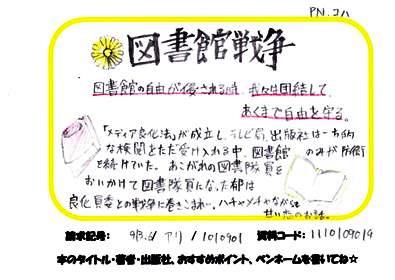 PN.コハ
図書館戦争
図書館の自由が侵される時、我々は団結して、
あくまで自由を守る。
「メディア良化法」が成立し、テレビ局、出版社は一方的
な検閲をただ受け入れる中、図書館のみが防衛
を続けていた。あこがれの図書隊員を
おいかけて図書隊員になった郁は
良化員委との戦争に巻きこまれ…ハチャメチャながらも
甘い恋のお話。
請求記号: 913.6/アリ/101090 資料コード: 1110109019
本のタイトル・著者・出版社、おすすめポイント、ペンネームを書いてね☆